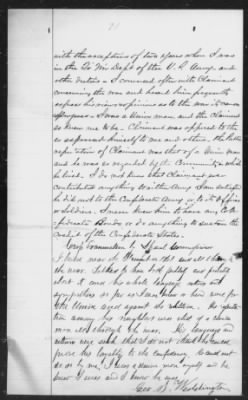 with the exceptions of two years when I was
in the Qr Mr Dept of the U.S. Army and
other duties - I conversed often with Claimant
concerning the war and heard him frequently
express his views & opinions as to the war its causes
& progress - I was a Union man, and the Claimant
so knew me to be. Claimant was opposed to the
so expressed himself to me and others. the public
reputation of Claimant was that of a Union man
and he was so regarded by the Community in which
he lived. I do not know that Claimant ever
contributed anything to either Army I am satisfied
he did not to the Confederate Army or to its officers
or soldiers. I never knew him to have any Con
federate Bonds or do anything to sustain the
credit of the Confederate States.
Cross Examination by Special Commissioner
I lived near the Claimant in 1861 and all through
the war. I talked to him
about it and his whole language
sympathies so far as I know him were
the Union and against the rebellion. His repu
tation among his neighbors was that of a Union
man all through the war. His language and
actions were such that I do not think he could
prove his loyalty to the confederacy. He could not
do so by me, I was a Union man myself and he
knew I was and I knew he was.
Geo. B. Washington